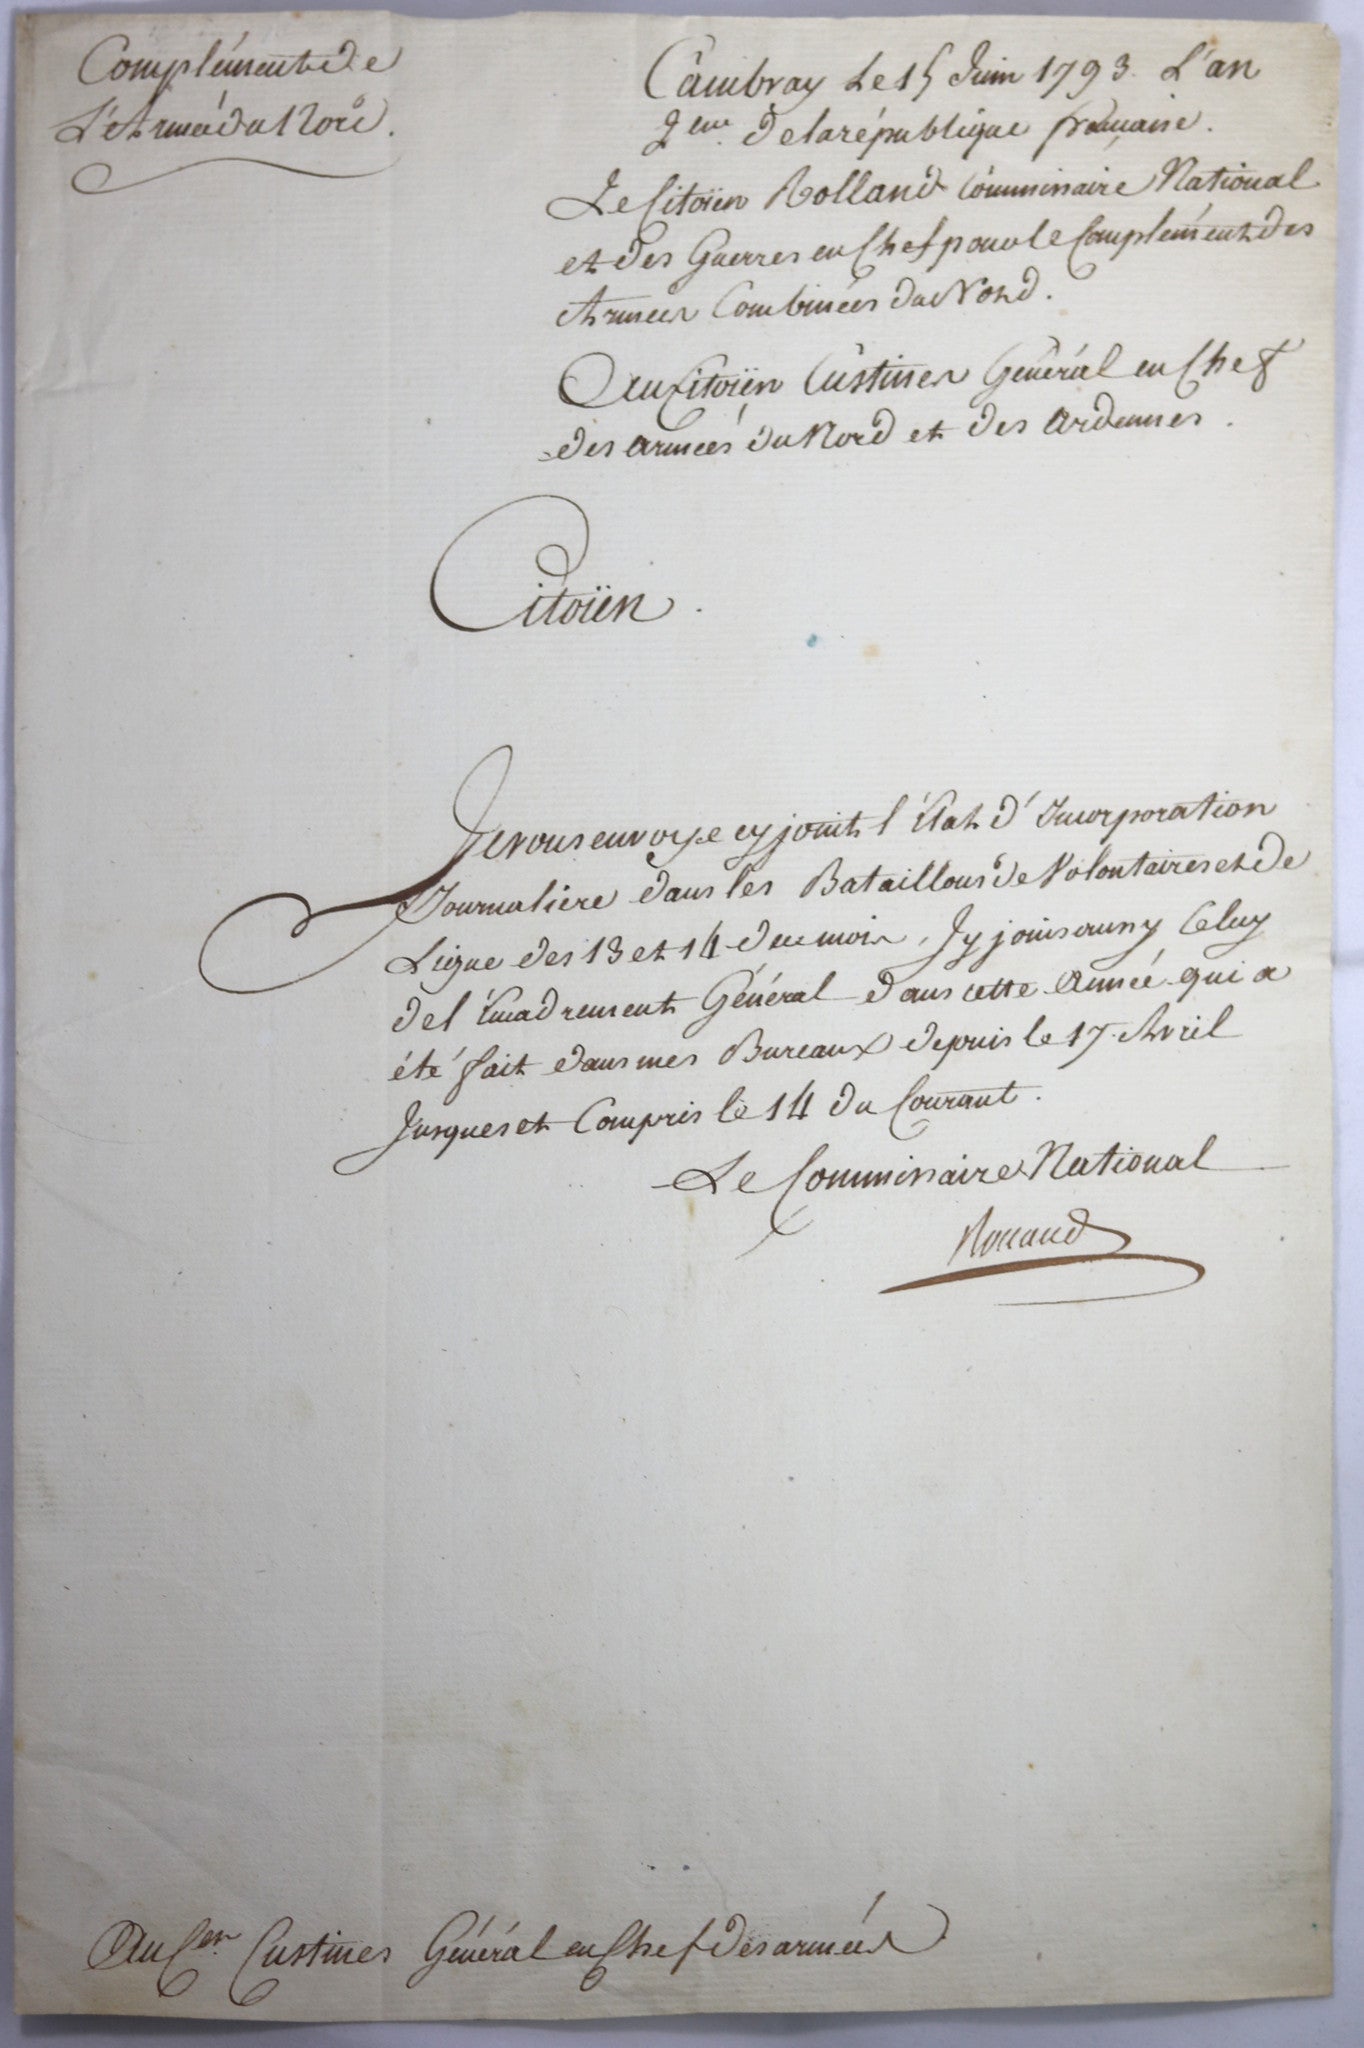 Complément de
L'Armée du Nord.
Cambray Le 15 Juin 1793. L'an
2eme. de la république française.
Le Citoïen Rolland Commissaire National
et des Guerres en Chef pour le Complément des
Armées Combinées du Nord.
Au Citoïen Custines Général en Chef
des armées du Nord et des Ardennes.
Citoïen.
Je vous envoye cy joint l'État d'Incorporation
Journalière dans les Bataillons de Volontaires et de
Ligne des 13 et 14 du mois, J'y joins aussy Celuy
de l'Encadrement Général dans cette Armée qui a
été fait dans mes Bureaux depuis le 17 Avril
Jusques et Compris le 14 du Courant.
Le Commissaire National
Rolland
Au Cen. Custines Général en Chef des armées